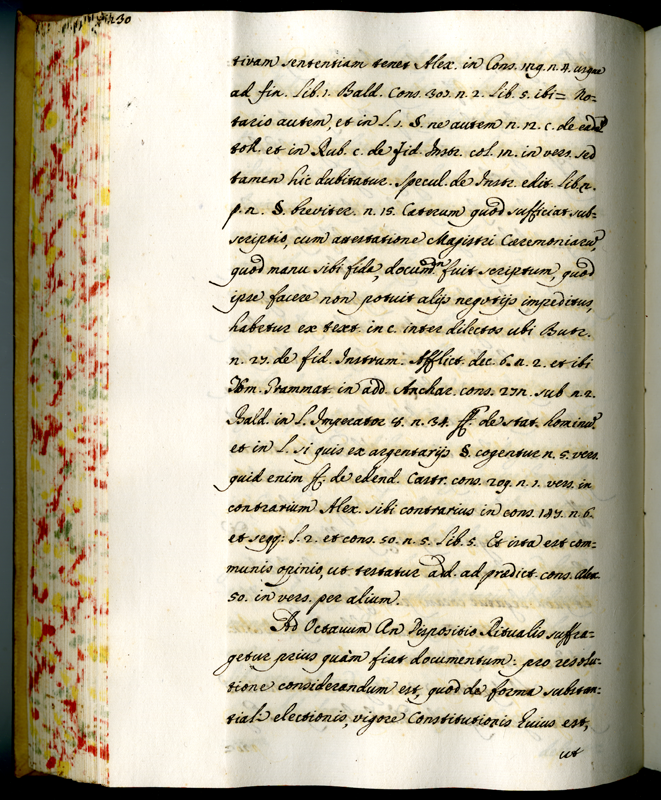 230
tivam sententiam tenet Alex. in Cons. 119. n. 4. usque
ad fin. Lib. 1. Bald. Cons. 302. n. 2. Lib. 5. ibi = No=
tario autem, et in L. 1. §. ne autem n. 12. c. de
et in Rub. c. de fid. Instr. col. in vers. sed
tamen hic dubitatur. Specul. de Instr. edit. Lib. 2.
p. n. §. breviter. n. 15. Caeterum quod sufficiat sub=
scriptio, cum attestatione Magistri Caeremoniaru,
quod manu sibi fida, docum. fuit scriptum, quod
ipse facere non potuit alijs negotijs impeditus,
habetur ex text. in c. inter dilectos ubi Butr.
n. 27. de fid. Instrum. Afflict. dec. 6. n. 2. et ibi
Grammat. in add. Anchar. cons. sub n. 2.
Bald. in L. Imperator 8. n. 34. ff. de stat. hominu
et in L. si quis ex argentarijs §. cogentur n. 5. vers.
quid enim ff. de edend. Castr. cons. 209. n. 1. vers. in
contrarium Alex. sibi contrarius in cons. 147. n. 6.
et seqq: L. 2. et cons. 50. n. 5. Lib. 5. Et ista est com=
munis opinio, ut testatur add. ad praedict. cons. Alex.
50. in vers. per alium.
Ad Octavum An Dispositio Ritualis suffra=
getur prius quàm fiat documentum: pro resolu=
tione considerandum est, quod de forma substan=
tiali electionis, vigore Constitutionis huius est,
ut